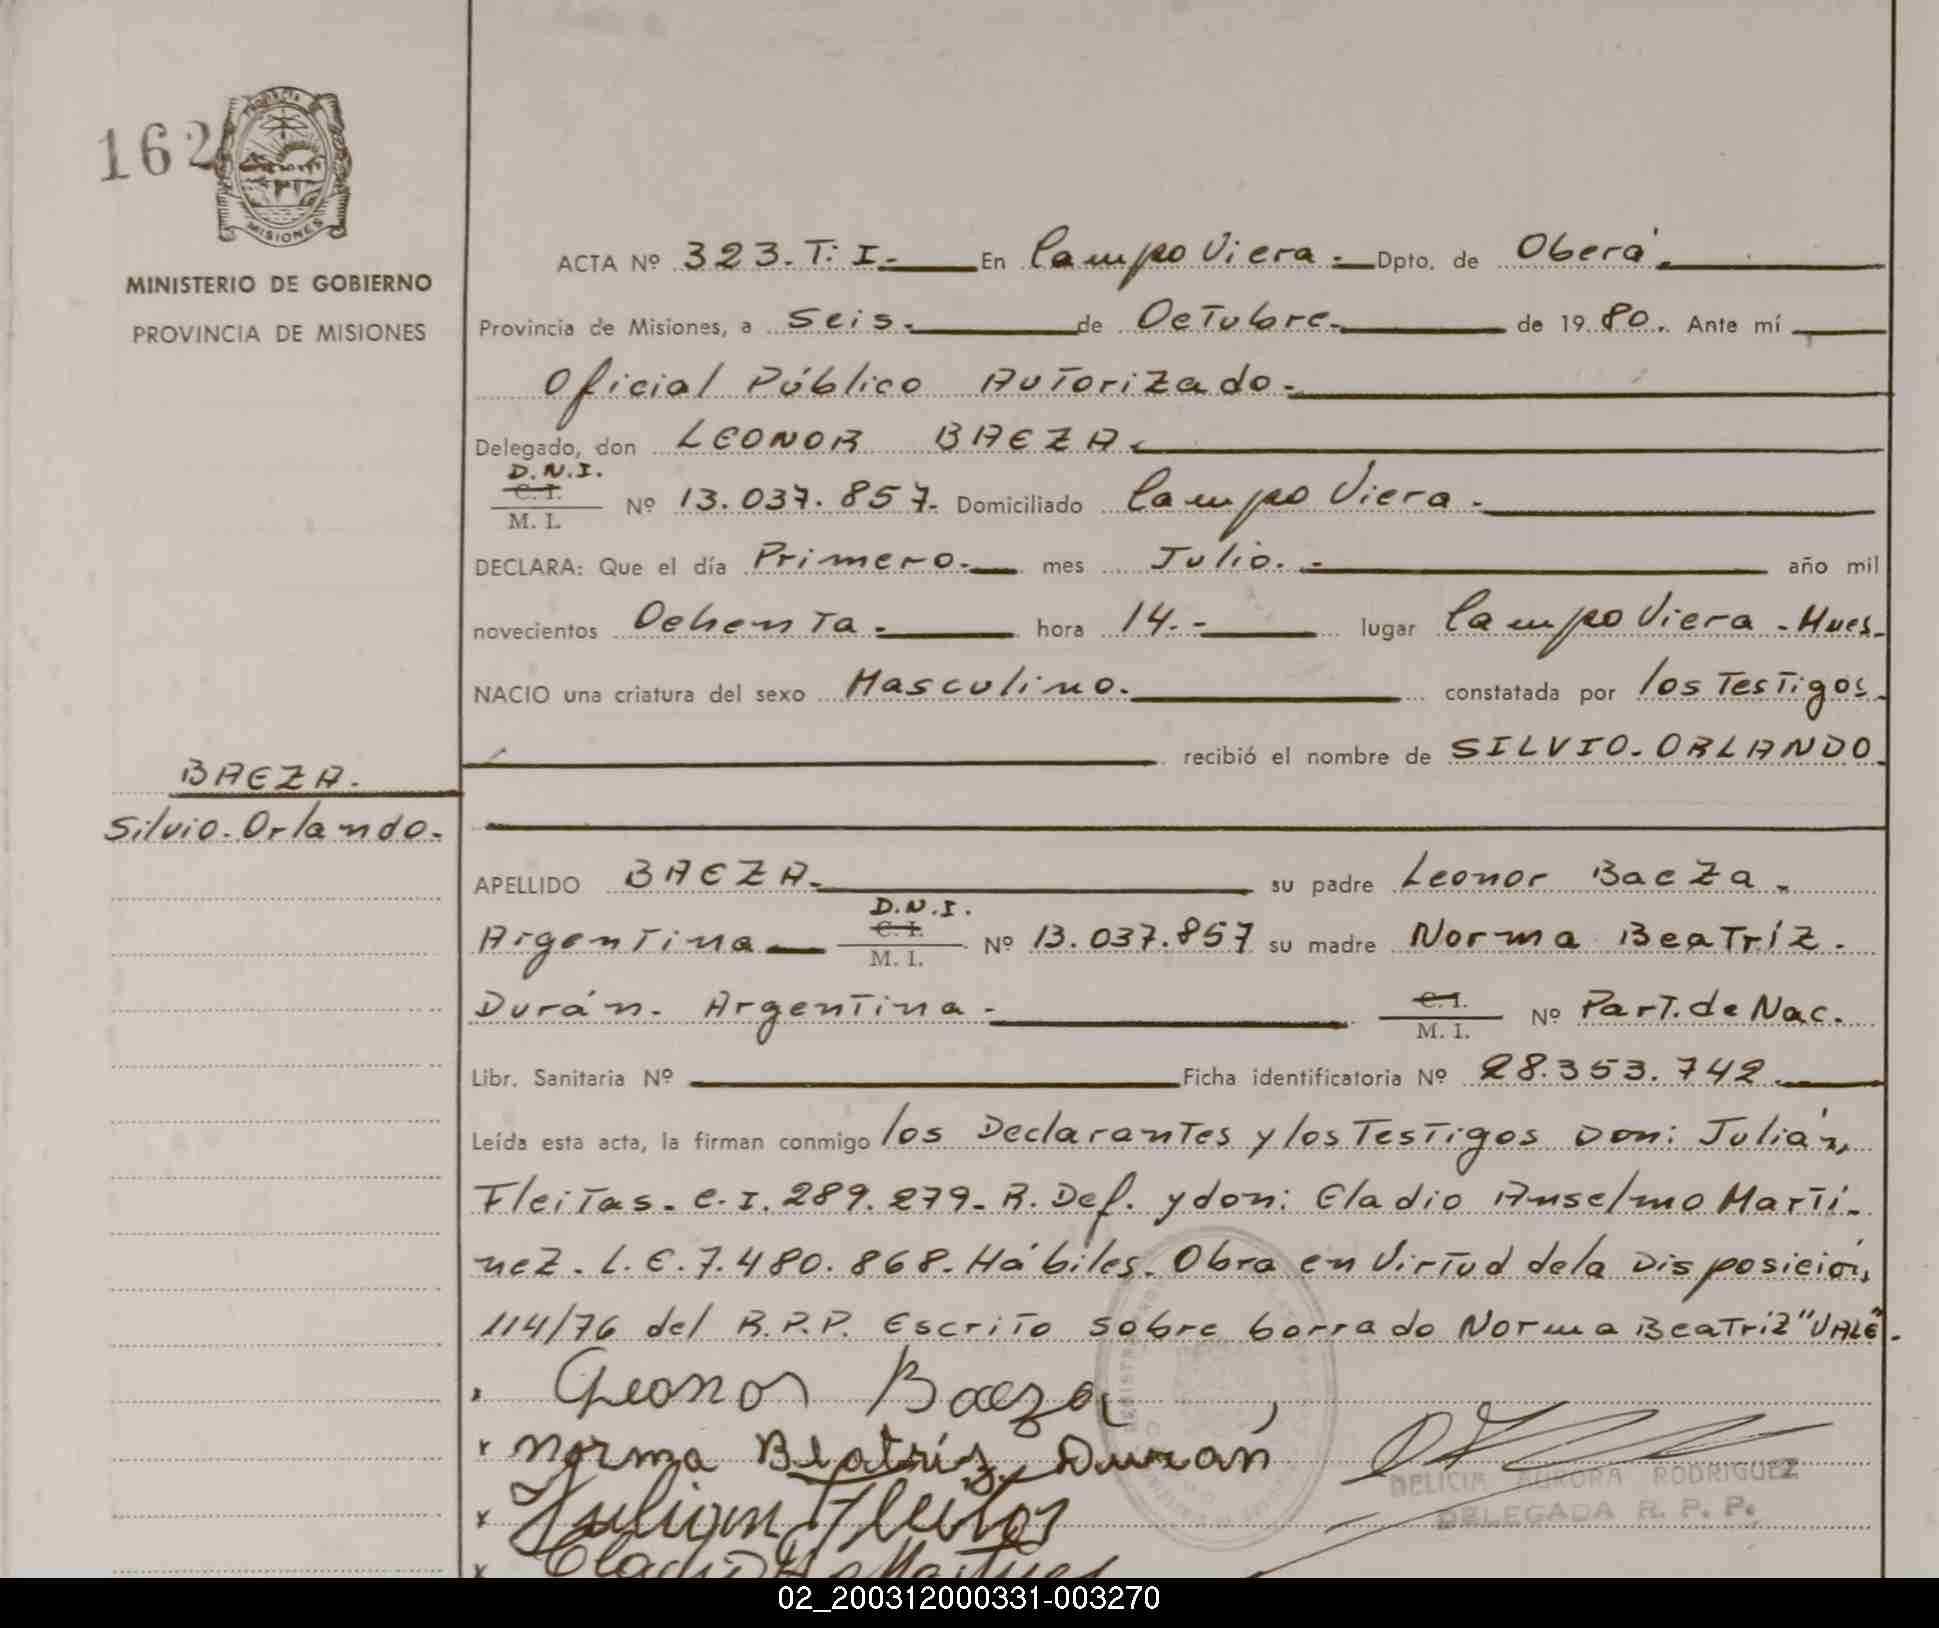 162
PROVINCIA
MISIONES
MINISTERIO DE GOBIERNO
PROVINCIA DE MISIONES
ACTA Nº 323. T: I.- En Campo Viera.- Dpto. de Oberá.
Provincia de Misiones, a Seis. de Octubre. de 19 80. Ante mí
Oficial Público Autorizado.-
Delegado, don LEONOR BAEZA.
D.N.I.
C. I.
M. I.
Nº 13.037.857. Domiciliado Campo Viera.
DECLARA: Que el día Primero. mes Julio. año mil
novecientos Ochenta. hora 14.- lugar Campo Viera - Hues.
NACIO una criatura del sexo Masculino. constatada por los Testigos.
recibió el nombre de SILVIO. ORLANDO
BAEZA.
Silvio. Orlando.
APELLIDO BAEZA. su padre Leonor Baeza.
D.N.I.
C. I.
M. I.
Argentina Nº 13.037.857 su madre Norma Beatríz.
Durán. Argentina. C. I. M. I. Nº Part. de Nac.
Libr. Sanitaria Nº Ficha identificatoria Nº 28.353.742
Leída esta acta, la firman conmigo los Declarantes y los Testigos Don: Julián,
Fleitas. C. I. 289.279. R. Def. y don: Eladio Anselmo Martí-
nez. L. E. 7.480.868. Hábiles. Obra en Virtud de la Disposición,
114/76 del R.P.P. Escrito sobre borrado Norma Beatríz "VALE".
x Leonor Baeza
x Norma Beatríz Durán
x Julian Fleitas
x Eladio A. Martinez
DELICIA AURORA RODRIGUEZ
DELEGADA R. P. P.
02_200312000331-003270